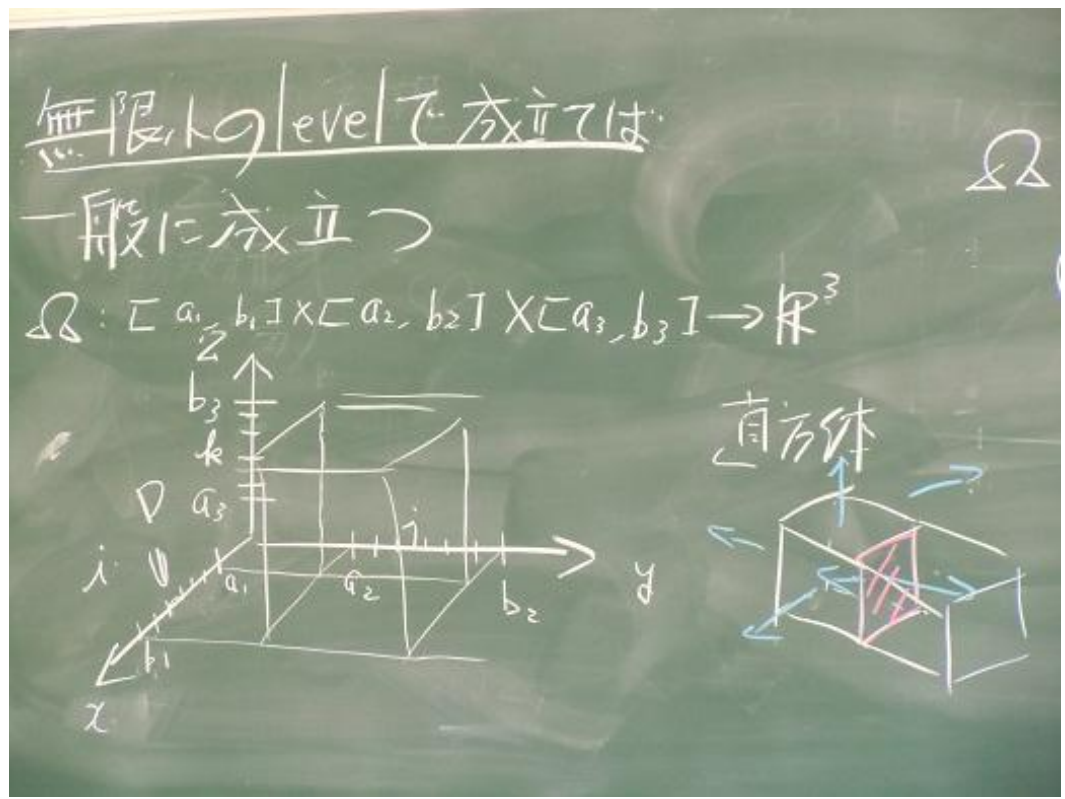 無限小のlevelで成立てば
一般に成立つ
Ω
Ω : [a₁, b₁]×[a₂, b₂]×[a₃, b₃]→ℝ³
z
b₃
k
a₃
D
i
a₁
a₂
j
b₂
y
b₁
x
直方体